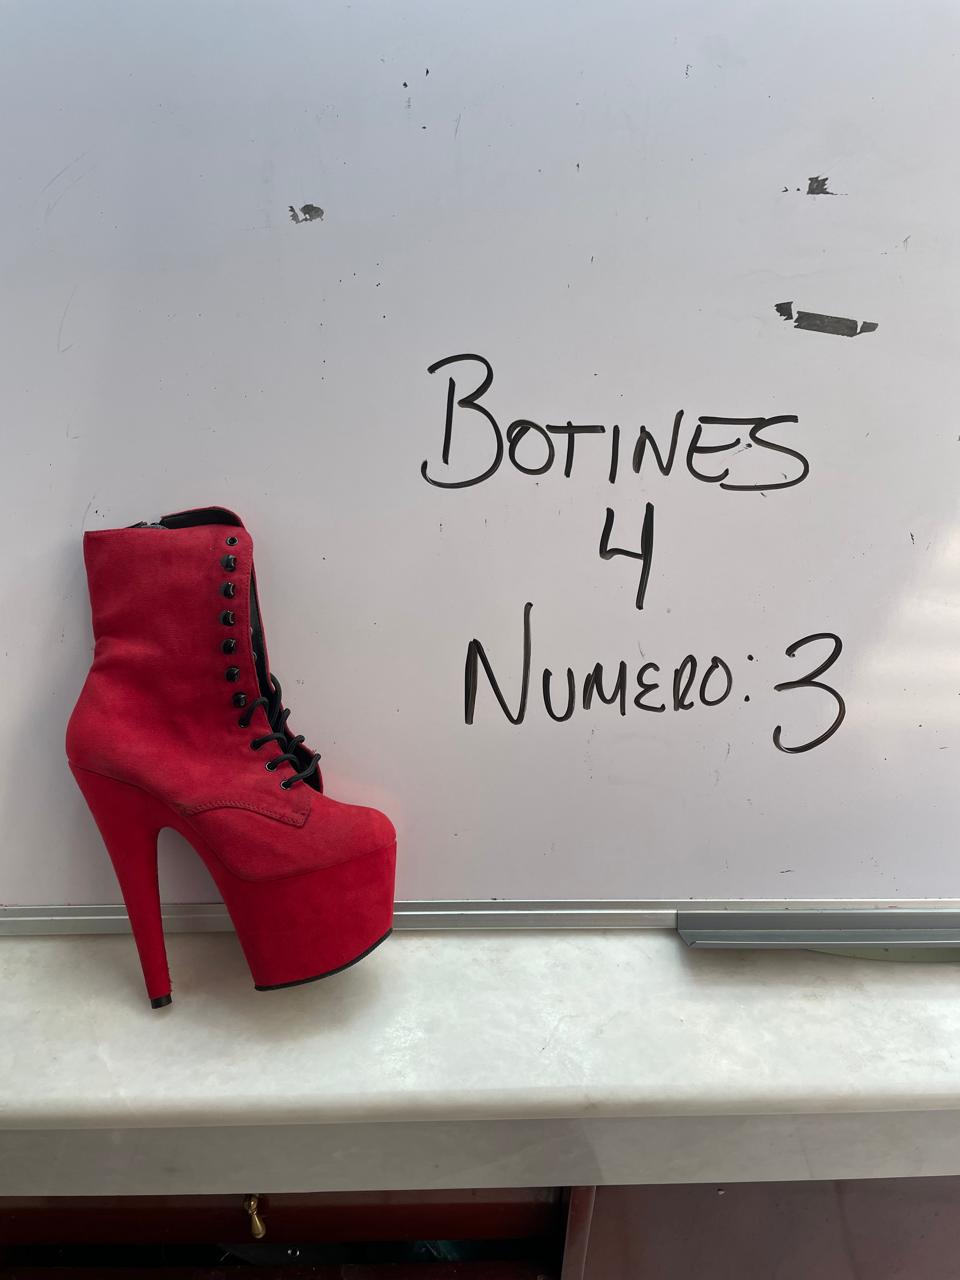 BOTINES
4
NUMERO: 3